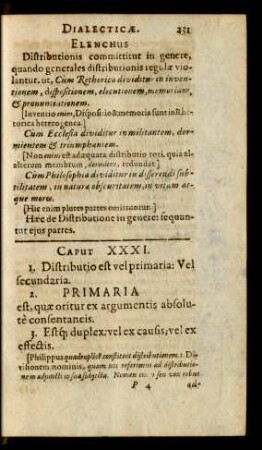 DIALECTICÆ. 231
ELENCHUS
Distributionis committitur in genere,
quando generales distributionis regulæ vio-
lantur. ut, Cum Rethorica dividitur in inven-
tionem, dispositionem, elocutionem, memoriam,
& pronuntiationem.
[Inventio enim, Dispositio & memoria sunt in rhe-
torica heterogenea.]
Cum Ecclesia dividitur in militantem, dor-
mientem & triumphantem.
[Non enim est adæquata distributio toti, quia al-
alterum membrum, dormiens, redundat.]
Cum Philosophia dividitur in differendi sub-
tilitatem, in naturæ obscuritatem, in vitam at-
que mores.
[Hic enim plures partes omittuntur.]
Hæc de Distributione in genere: sequun-
tur ejus partes.
CAPUT XXXI.
1. Distributio est vel primaria: Vel
secundaria.
2. PRIMARIA
est, quæ oritur ex argumentis absolu-
tè consentaneis.
3. Estq; duplex: vel ex causis, vel ex
effectis.
[Philippus quadruplicē constituit distributionem. 1. Di-
visionem nominis, quam nos referimus ad distributio-
nem adjuncti in sua subjecta. Nomen
P 4